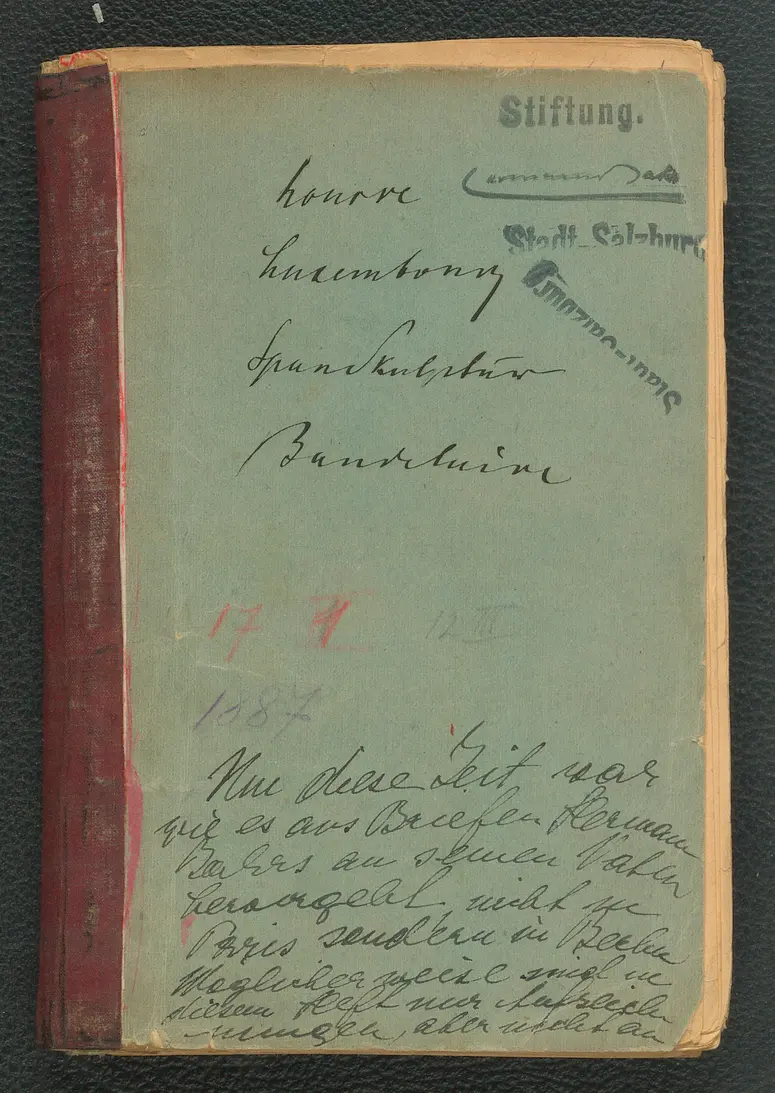 Stiftung.
Hermann Bahr
Stadt-Salzburg
Stadt-Salzburg
Louvre
Luxembourg
Baudelaire
17 12 III
1887
Um diese Zeit war
wie es aus Briefen Hermann
Bahrs an seinen Vater
hervorgeht, nicht in
Paris sondern in Berlin
Möglicherweise sind in
diesem Heft nur Aufzeich
nungen, aber nicht an